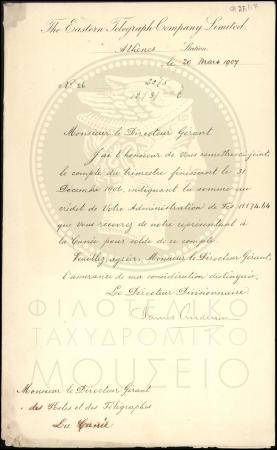 The Eastern Telegraph Company Limited.
Athènes Station.
le 20 Mars 1907
No 26
Monsieur le Directeur Gérant
J'ai l'honneur de Vous remettre ci-joint,
le compte du trimestre finissant le 31
Décembre 1906, indiquant la somme au
crédit de Votre Administration de Fcs 11174.64
que Vous recevrez de notre représentant à
la Canée pour solde de ce compte.
Veuillez agréer, Monsieur le Directeur Gérant,
l'assurance de ma considération distinguée,
Le Directeur Divisionnaire
ΦΙΛΟΤΕΛΙΚΟ
ΤΑΧΥΔΡΟΜΙΚΟ
ΜΟΥΣΕΙΟ
Monsieur le Directeur Gérant
des Postes et des Télégraphes
La Canée